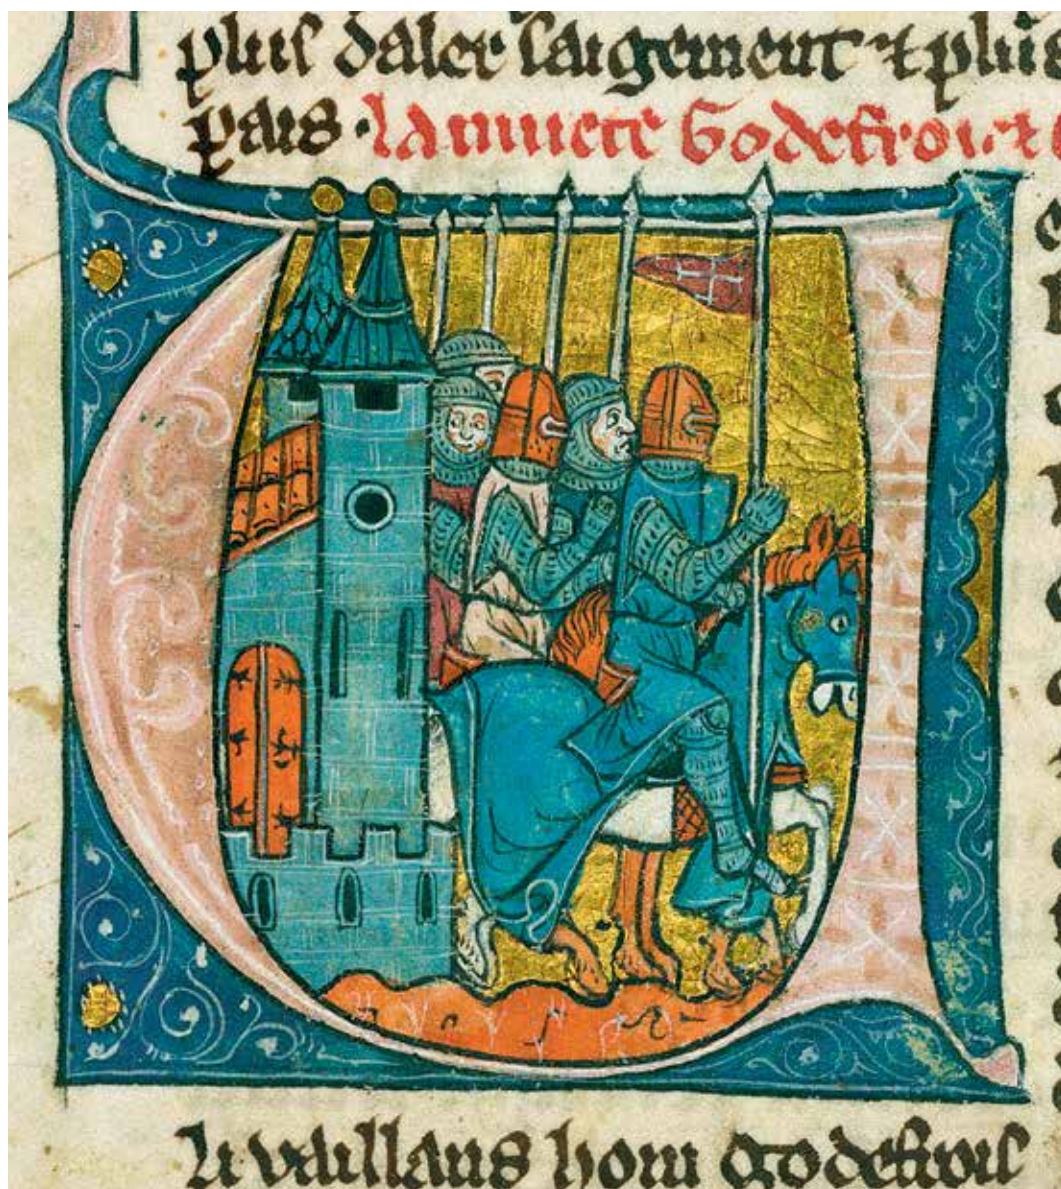 plus daler saigement ⁊ plus
pais · lamuete Godefroi
li vaillans hom godefrois